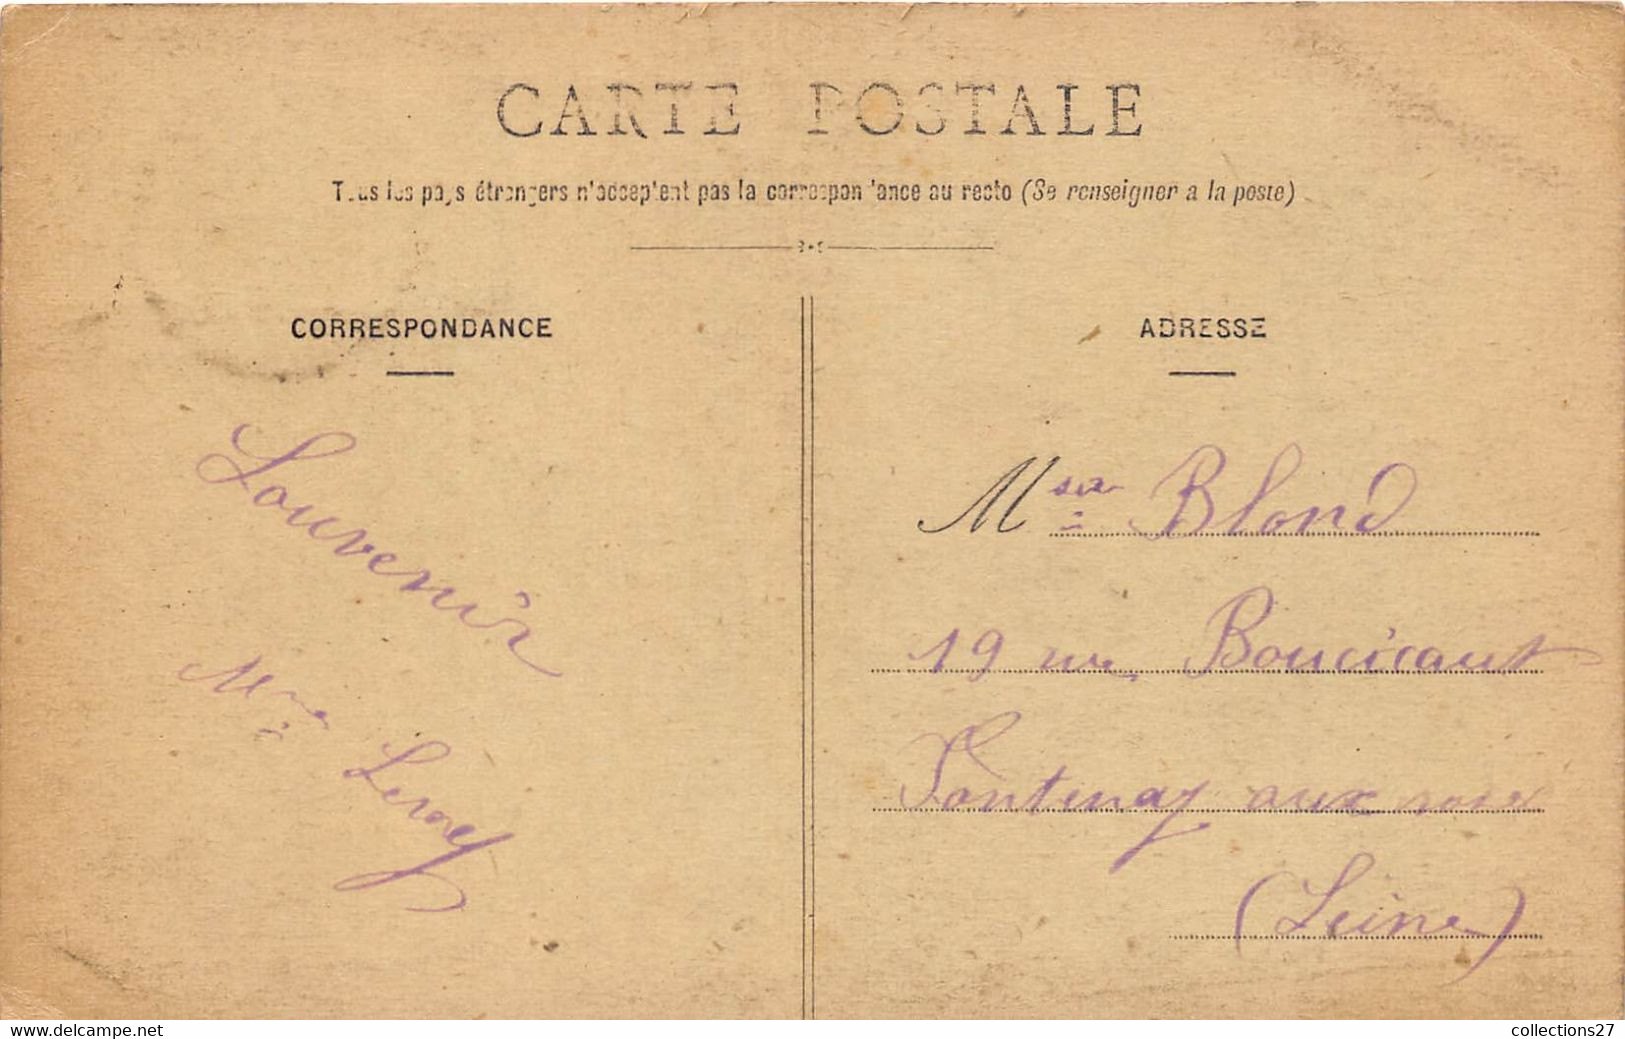 CARTE POSTALE
Tous les pays étrangers n'acceptent pas la correspondance au recto (Se renseigner à la poste)
CORRESPONDANCE
Souvenir
Mme Leroy
ADRESSE
M Blond
19 rue Boucicaut
Fontenay aux roses
(Seine)
www.delcampe.net
collections27